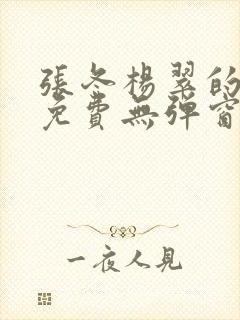 張冬楊翠的
免費無彈窗
一夜人見